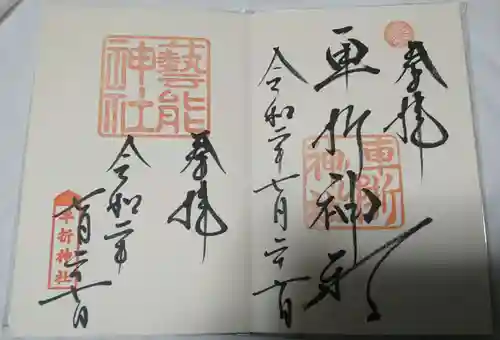 奉拝
車折神社
車折神社
令和二年七月二十七日
奉拝
藝能神社
令和二年
七月二十七日
車折神社